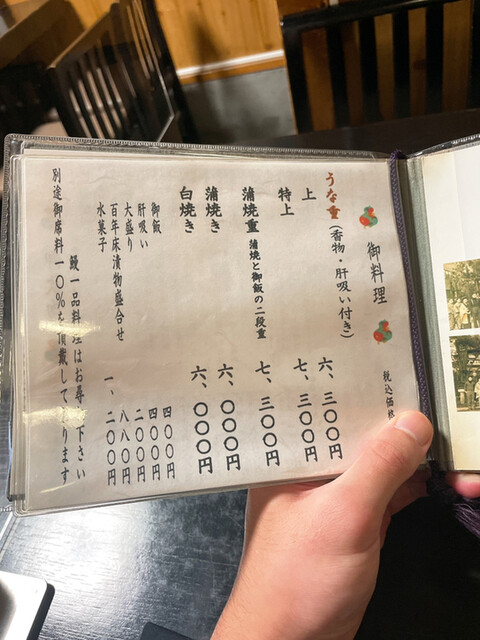 御料理
税込価格
うな重(香物・肝吸い付き)
上 六、三〇〇円
特上 七、三〇〇円
蒲焼重 蒲焼と御飯の二段重 七、三〇〇円
蒲焼き 六、〇〇〇円
白焼き 六、〇〇〇円
御飯 四〇〇円
肝吸い 四〇〇円
大盛り 二〇〇円
百年床漬物盛合せ 八八〇円
水菓子 一、二〇〇円
鰻一品料理はお尋ね下さい
別途御席料一〇%を頂戴しております